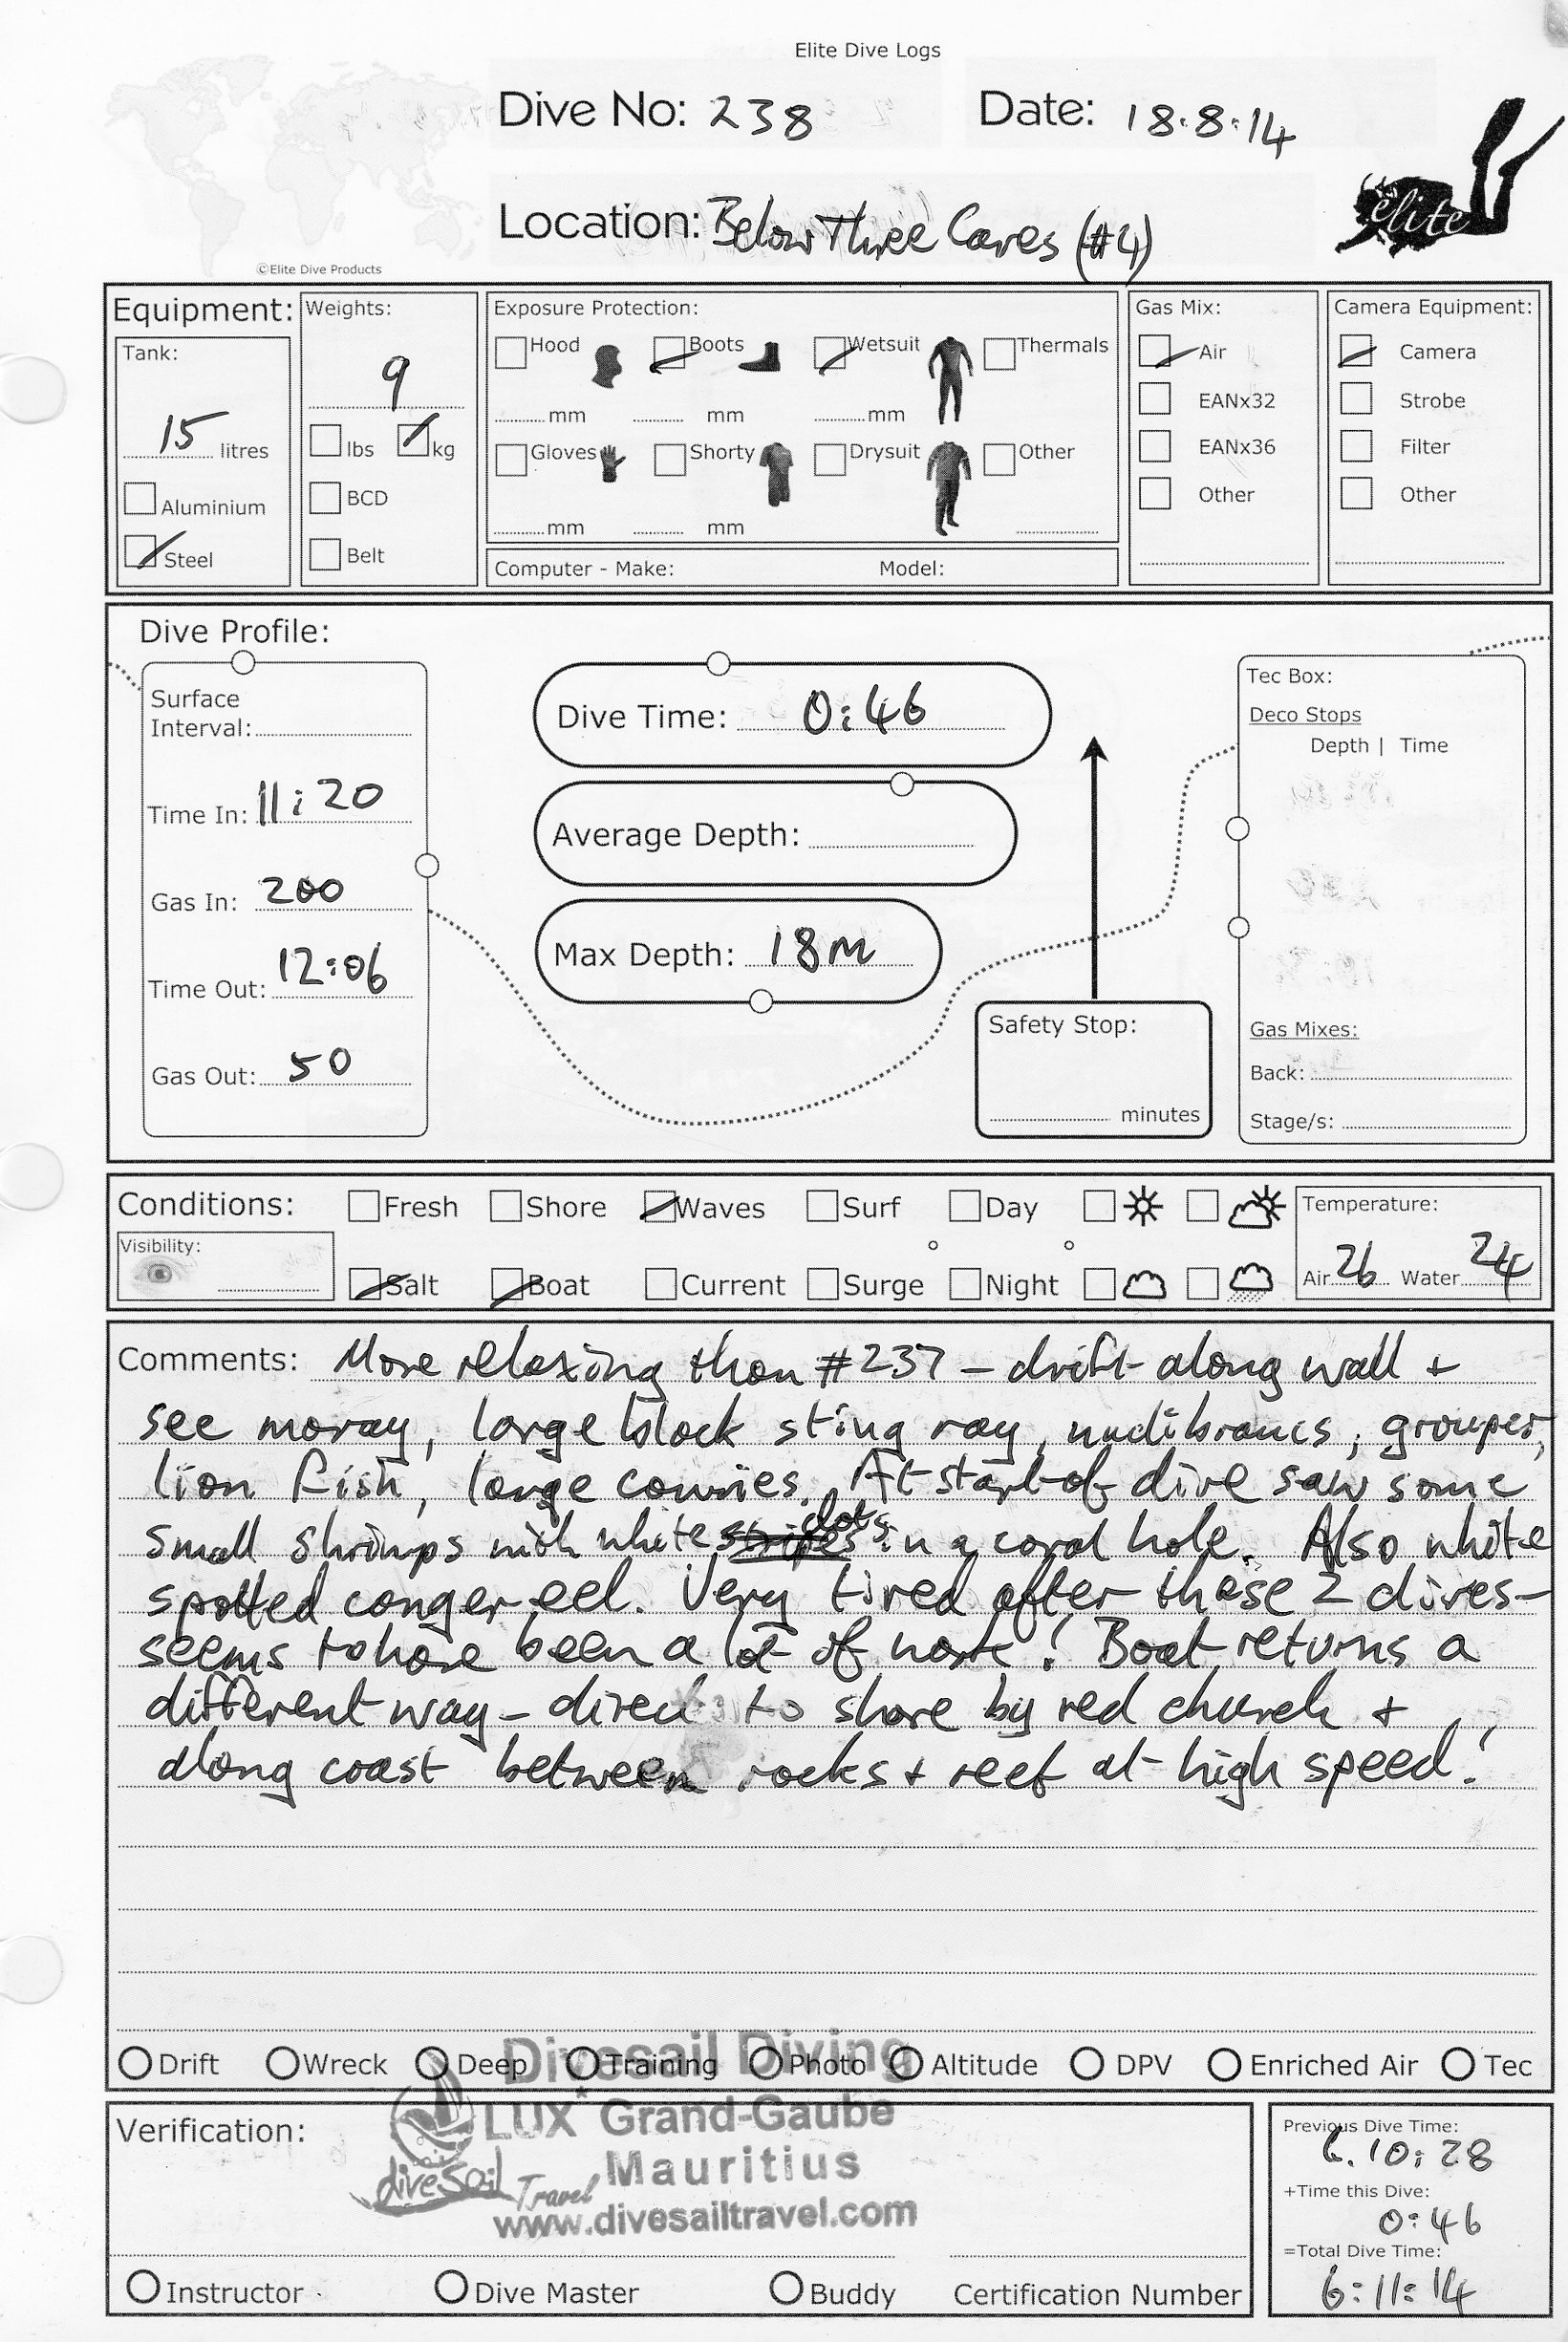 Elite Dive Logs
Dive No: 238 Date: 18.8.14
Location: Below Three Caves (#4)
©Elite Dive Products
elite
Equipment:
Tank:
15 litres
Aluminium
Steel
Weights:
9
lbs kg
BCD
Belt
Exposure Protection:
Hood Boots Wetsuit Thermals
mm mm mm
Gloves Shorty Drysuit Other
mm mm
Computer - Make: Model:
Gas Mix:
Air
EANx32
EANx36
Other
Camera Equipment:
Camera
Strobe
Filter
Other
Dive Profile:
Surface
Interval:
Time In: 11:20
Gas In: 200
Time Out: 12:06
Gas Out: 50
Dive Time: 0:46
Average Depth:
Max Depth: 18m
Safety Stop:
minutes
Tec Box:
Deco Stops
Depth | Time
Gas Mixes:
Back:
Stage/s:
Conditions: Fresh Shore Waves Surf Day
Visibility:
Salt Boat Current Surge Night
Temperature:
Air 26 Water 24
Comments: More relaxing than #237 – drift along wall +
see moray, large black sting ray, nudibrancs, grouper,
lion fish, large cowries. At start of dive saw some
small shrimps with white stripes dots in a coral hole. Also white
spotted conger eel. Very tired after these 2 dives –
seems to have been a lot of work! Boat returns a
different way – direct to shore by red church +
along coast between rocks + reef at high speed!
Drift Wreck Deep Training Photo Altitude DPV Enriched Air Tec
Divesail Diving
LUX* Grand-Gaube
Mauritius
diveSail Travel
www.divesailtravel.com
Verification:
Instructor Dive Master Buddy Certification Number
Previous Dive Time:
6.10:28
+Time this Dive:
0:46
=Total Dive Time:
6:11:14